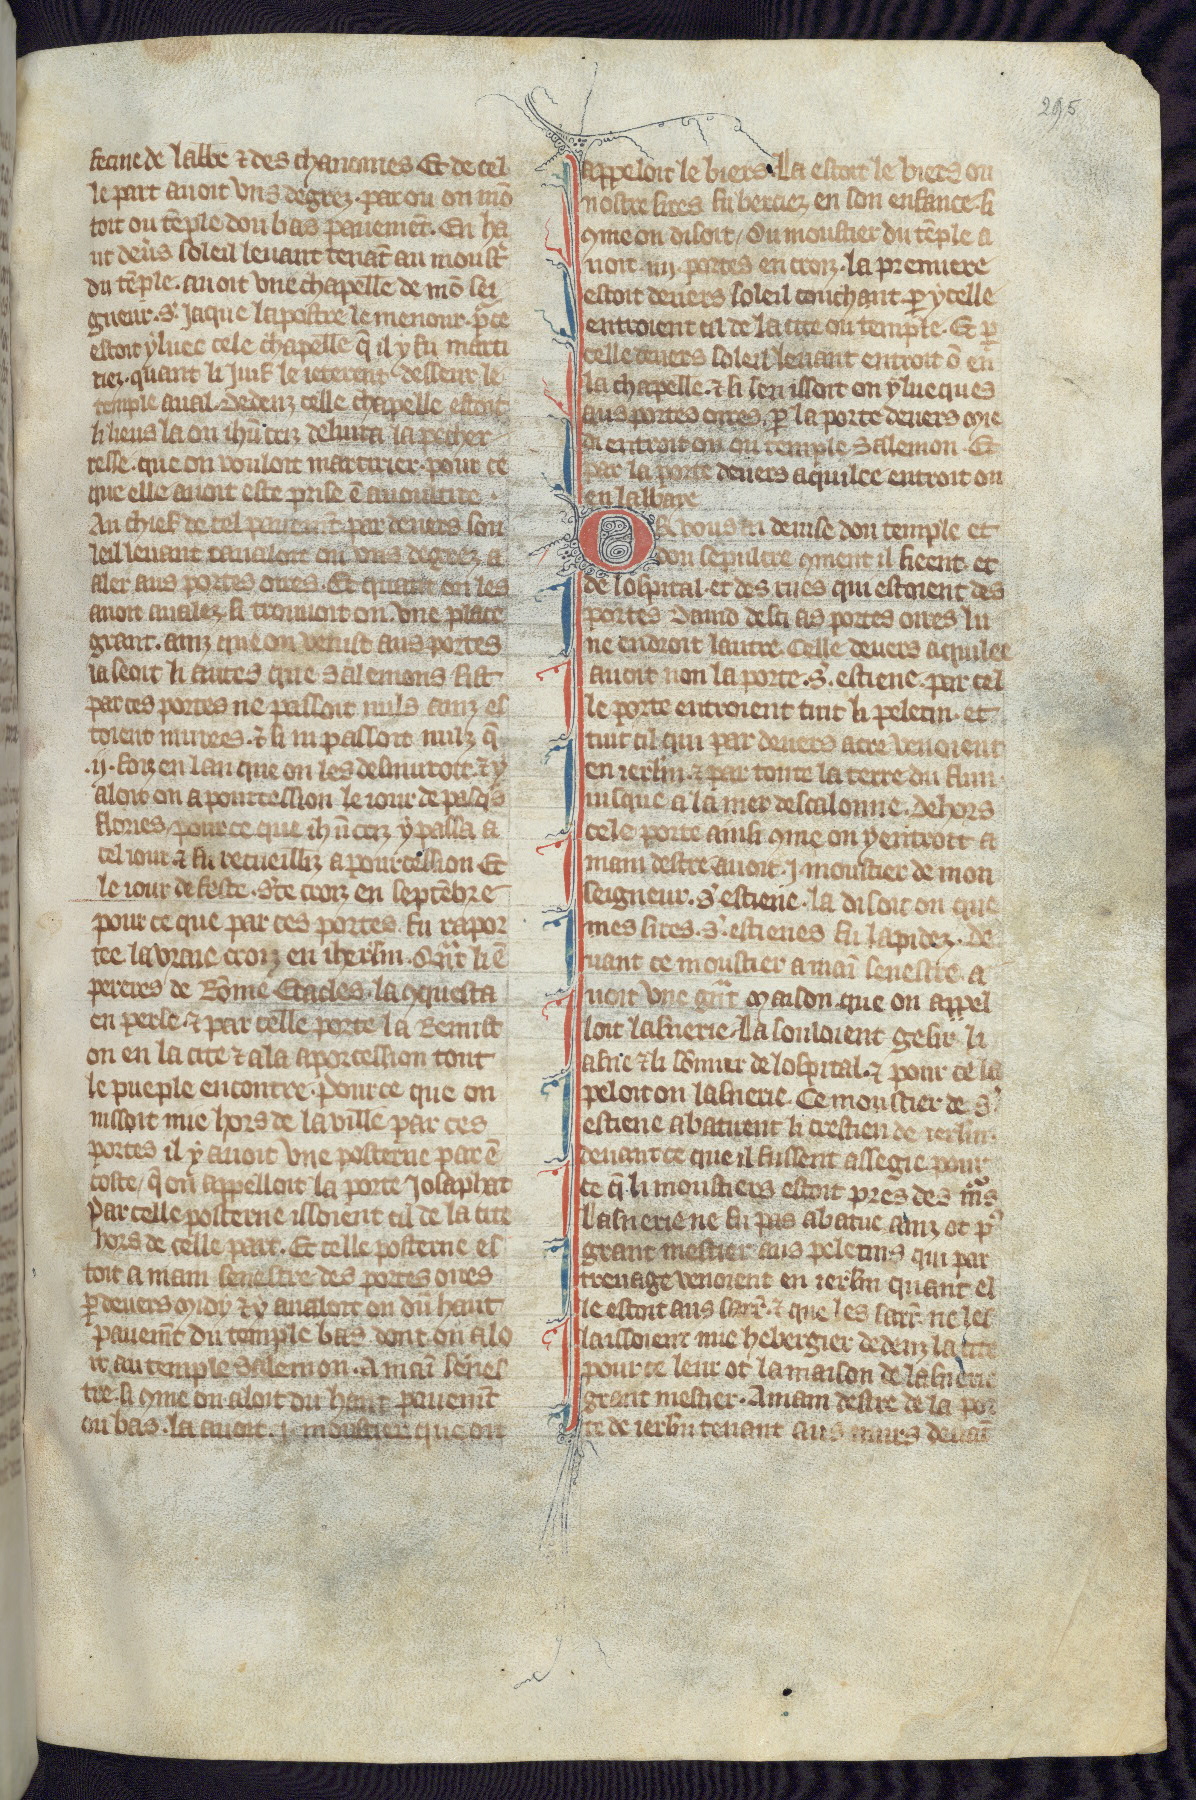 295
fecine de labbe ⁊ des chanoines Et de cel
le part auoit vns degrez. par ou on mō
toit ou tēple dou bas pauemēt. En ha
ut deūs soleil leuant tenāt au moust̄
du tēple. auoit vne chapelle de mō sei
gneur. S. Jaque lapostre le menour. p̄ ce
estoit yluec cele chapelle q̄ il y fu marti
riez. quant li Juif le ieterent desseur le
temple aual. Dedenz celle chapelle estoit
li lieus la ou ih̄u criz deliura la pecher
resse. que on vouloit martirier. pour ce
que elle auoit este prise ē auoultire.
Au chief de cel pauemēt par deuers sou
leil leuant raualoit on vns degrez a
aler aus portes oires. Et quant on les
auoit aualez. si trouuoit on vne place
grant. ainz que on venist aus portes
la seoit li autes que Salemons fist
par ces portes ne passoit nuls ainz es
toient murees. ⁊ si ni passoit nulz q̄
.ij. foiz en lan que on les desmuroit. ⁊ y
aloit on a pourcession le iour de pasq̄s
flories/ pour ce que ih̄u criz y passa a
cel iour. ⁊ fu recueilliz a pourcession Et
le iour de feste. Ste croiz en septēbre
pour ce que par ces portes fu rapor
tee la vraie croiz en iherl̄m. Qn̄t li ē
pereres de Rōme Eracles. la ꝯquesta
en perse. ⁊ par celle porte la Remist
on en la cite ⁊ ala a porcession tout
le pueple encontre. Pour ce que on
nissoit mie hors de la ville par ces
portes il y auoit vne posterne par ē
coste/ q̄ on appelloit la porte Josaphat
Par celle posterne issoient cil de la cite
hors de celle part. Et celle posterne es
toit a main senestre des portes oires
p̄ deuers midy ⁊ y aualoit on dū haut
pauemēt du temple bas dont on alo
it au temple Salemon. A maī senes
tre si ꝯme on aloit du haut pauemēt
ou bas. la auoit. j. moustier que on
appeloit le biers. La estoit le biers ou
nostre sires fu berciez en son enfance si
ꝯme on disoit/ Ou moustier du tēple a
uoit .iiij. portes en croiz. la premiere
estoit deuers soleil couchant. p̄ ycelle
entroient cil de la cite ou temple. Et p̄
celle deuers soleil leuant entroit ō en
la chapelle. ⁊ si sen issoit on ylueques
aus portes oires. p̄ la porte deuers mie
di entroit on ou temple Salemon. Et
par la porte deuers aquilee entroit on
en labbaye
OR vous ai deuise dou temple et
dou sepulcre ꝯment il sieent. et
de lospital. et des rues qui estoient des
portes Dauid desci as portes oires lu
ne endroit lautre. Celle deuers aquilee
auoit non la porte. S. estiene. par cel
le porte entroient tuit li pelerin. et
tuit cil qui par deuers acre venoient
en ierl̄m. ⁊ par toute la terre du flun
iusque a la mer descalonne. Dehors
cele porte ainsi ꝯme on y entroit a
main destre auoit. j. moustier de mon
seigneur. S. estiene. la disoit on que
mes sires. S. estienes fu lapidez. De
uant ce moustier a maī senestre. a
uoit vne gn̄t maison que on appel
loit lasnerie. La souloient gesir li
asne ⁊ li sōmier de lospital. ⁊ pour ce la
peloit on lasnerie. Ce moustier de S.
estiene abatirent li crestien de ierl̄m.
deuant ce que il fussent assegie pour
ce q̄ li moustiers estoit pres des murs
Lasnerie ne fu pas abatue ainz ot p̄
grant mestier aus pelerins qui par
treuage venoient en ierl̄m quant el
le estoit aus sarr̄. ⁊ que les sarr̄. ne les
laissoient mie hebergier dedenz la cite
pour ce leur ot la maison de lasnerie
grant mestier. A main destre de la por
te de ierl̄m tenant aus murs deuāt